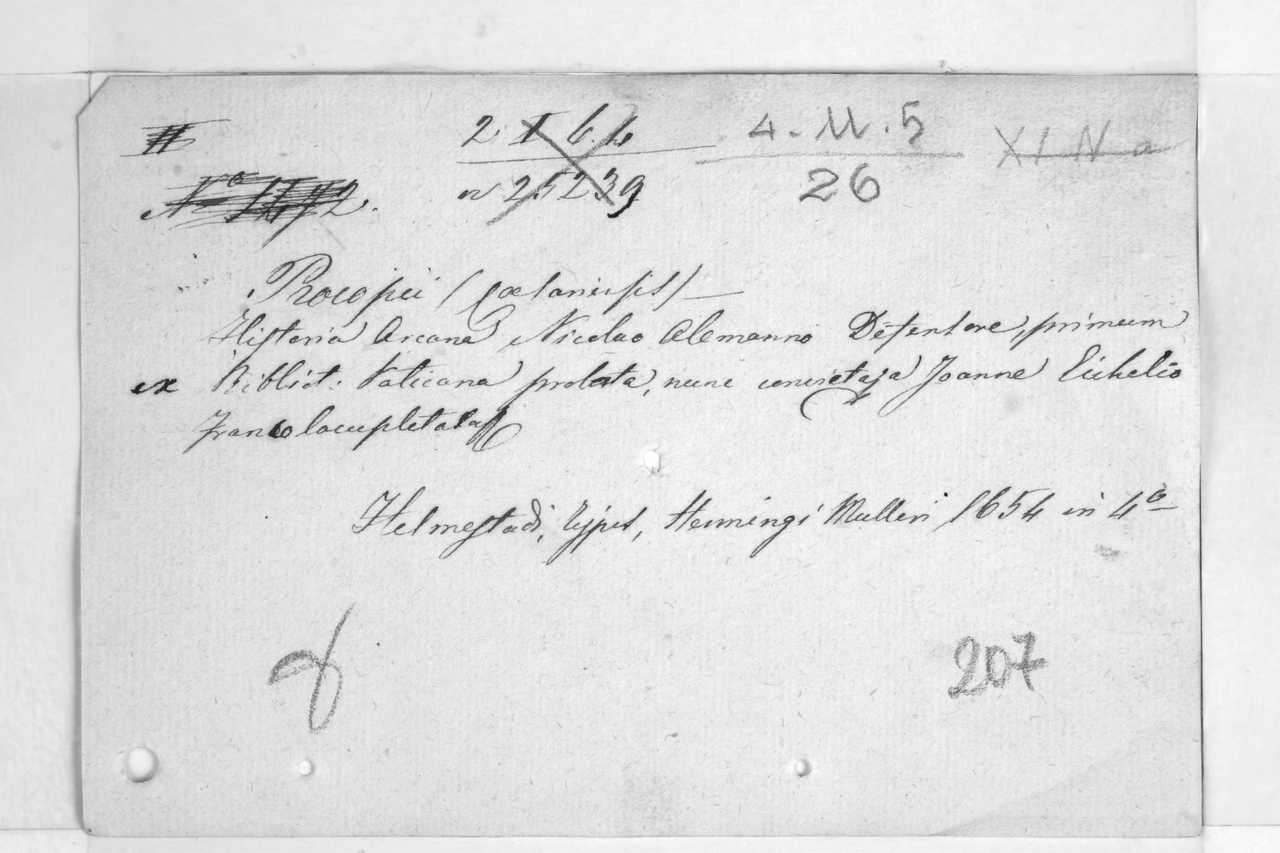 2 I 6 6
4. M. 5
XI N a
nº 25239
26
Procopii (Cæsariensis)—
Historia Arcana Nicolao Alemanno Defensore, primum
ex Bibliot: Vaticana prolata, nunc Joanne Eichelio
Franco locupletata
Helmestadi, typis, Henningi Mulleri 1654 in 4º
207